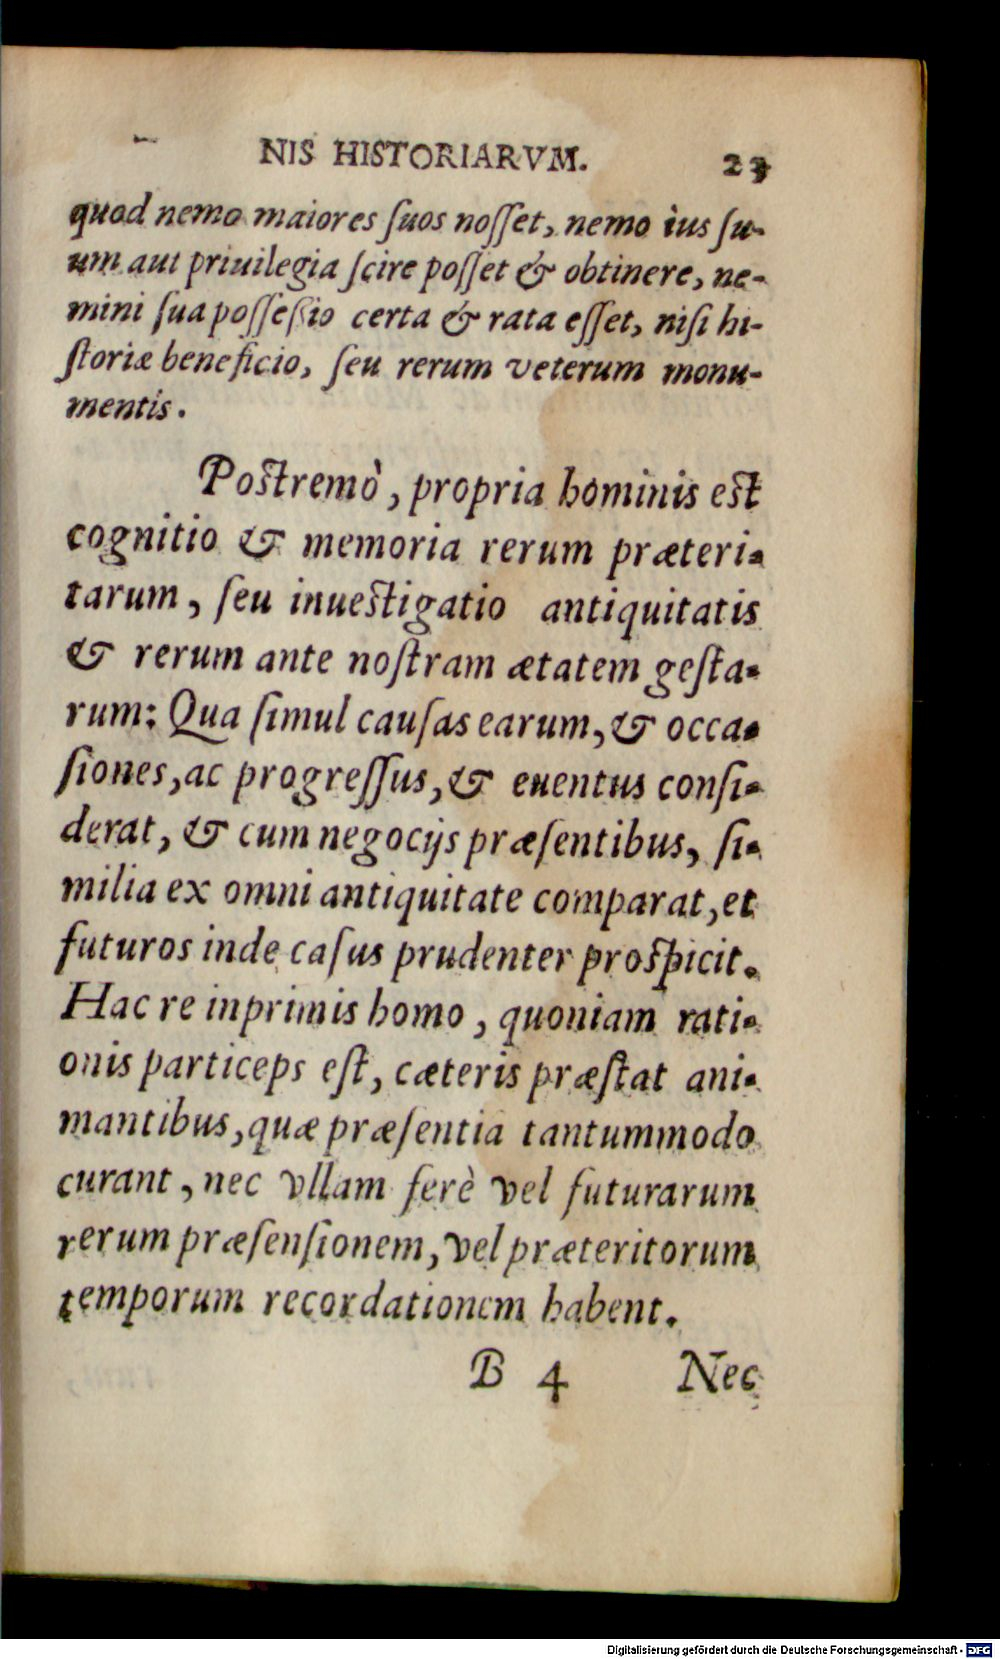 NIS HISTORIARVM. 23
quod nemo maiores ſuos noſſet, nemo ius ſu-
um aut priuilegia ſcire poſſet & obtinere, ne-
mini ſua poſſeſsio certa & rata eſſet, niſi hi-
ſtoriæ beneficio, ſeu rerum veterum monu-
mentis.
Poſtremò, propria hominis eſt
cognitio & memoria rerum præteri-
tarum, ſeu inueſtigatio antiquitatis
& rerum ante noſtram ætatem geſta-
rum: Qua ſimul cauſas earum, & occa-
ſiones, ac progreſſus, & euentus conſi-
derat, & cum negocijs præſentibus, ſi-
milia ex omni antiquitate comparat, et
futuros inde caſus prudenter proſpicit.
Hac re inprimis homo, quoniam rati-
onis particeps eſt, cæteris præſtat ani-
mantibus, quæ præſentia tantummodo
curant, nec vllam ferè vel futurarum
rerum præſenſionem, vel præteritorum
temporum recordationem habent.
B 4 Nec
Digitalisierung gefördert durch die Deutsche Forschungsgemeinschaft - DFG